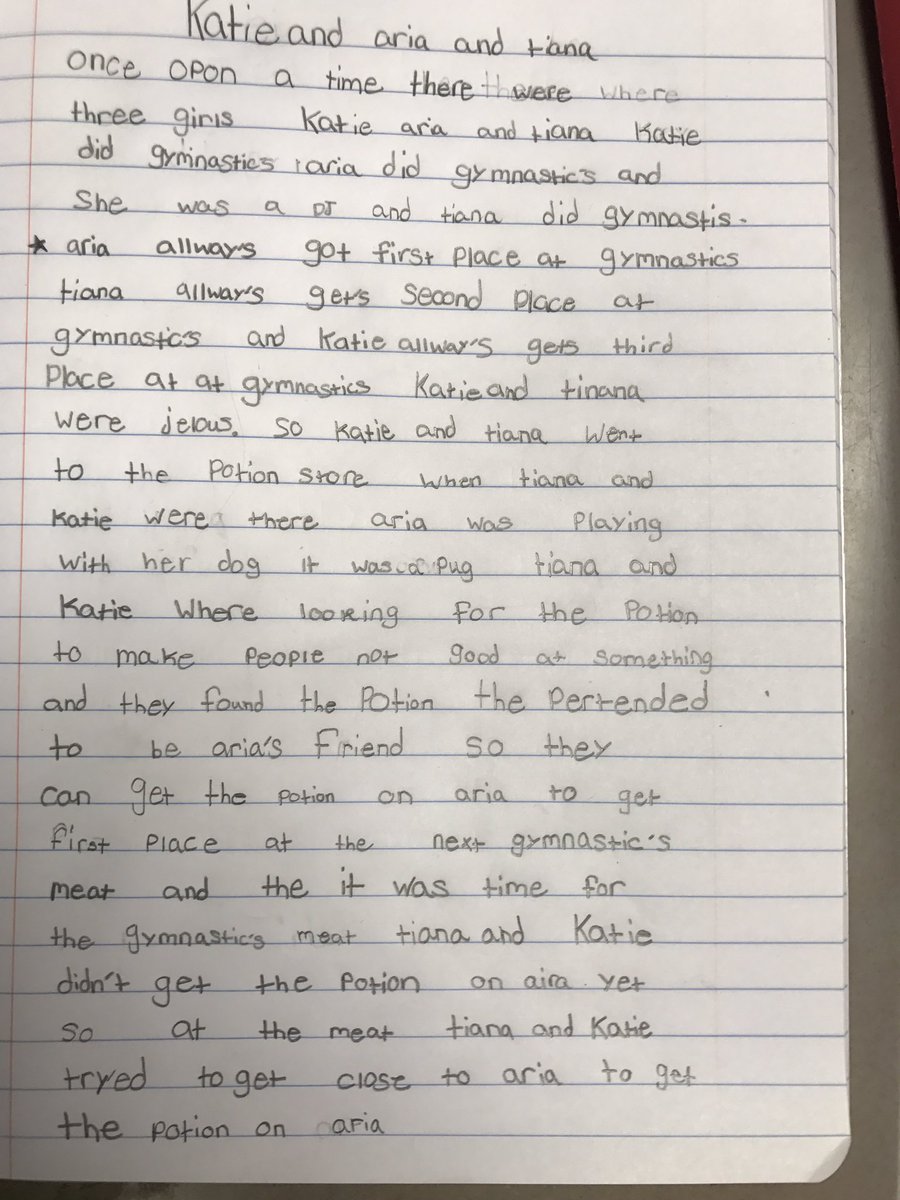 Katie and aria and tiana
once opon a time there were where
three girls Katie aria and tiana Katie
did gyminastics aria did gymnastics and
She was a DJ and tiana did gymnastis.
★ aria allway's got first place at gymnastics
tiana allway's gets second place at
gymnastic's and Katie allway's gets third
Place at at gymnastics Katie and tinana
were jelous. So Katie and tiana went
to the potion store when tiana and
Katie were there aria was playing
with her dog it was a pug tiana and
Katie where looking for the potion
to make people not good at something
and they found the potion the pertended
to be aria's friend so they
can get the potion on aria to get
first place at the next gymnastic's
meat and the it was time for
the gymnastic's meat tiana and Katie
didn't get the potion on aira yet
so at the meat tiana and Katie
tryed to get close to aria to get
the potion on aria